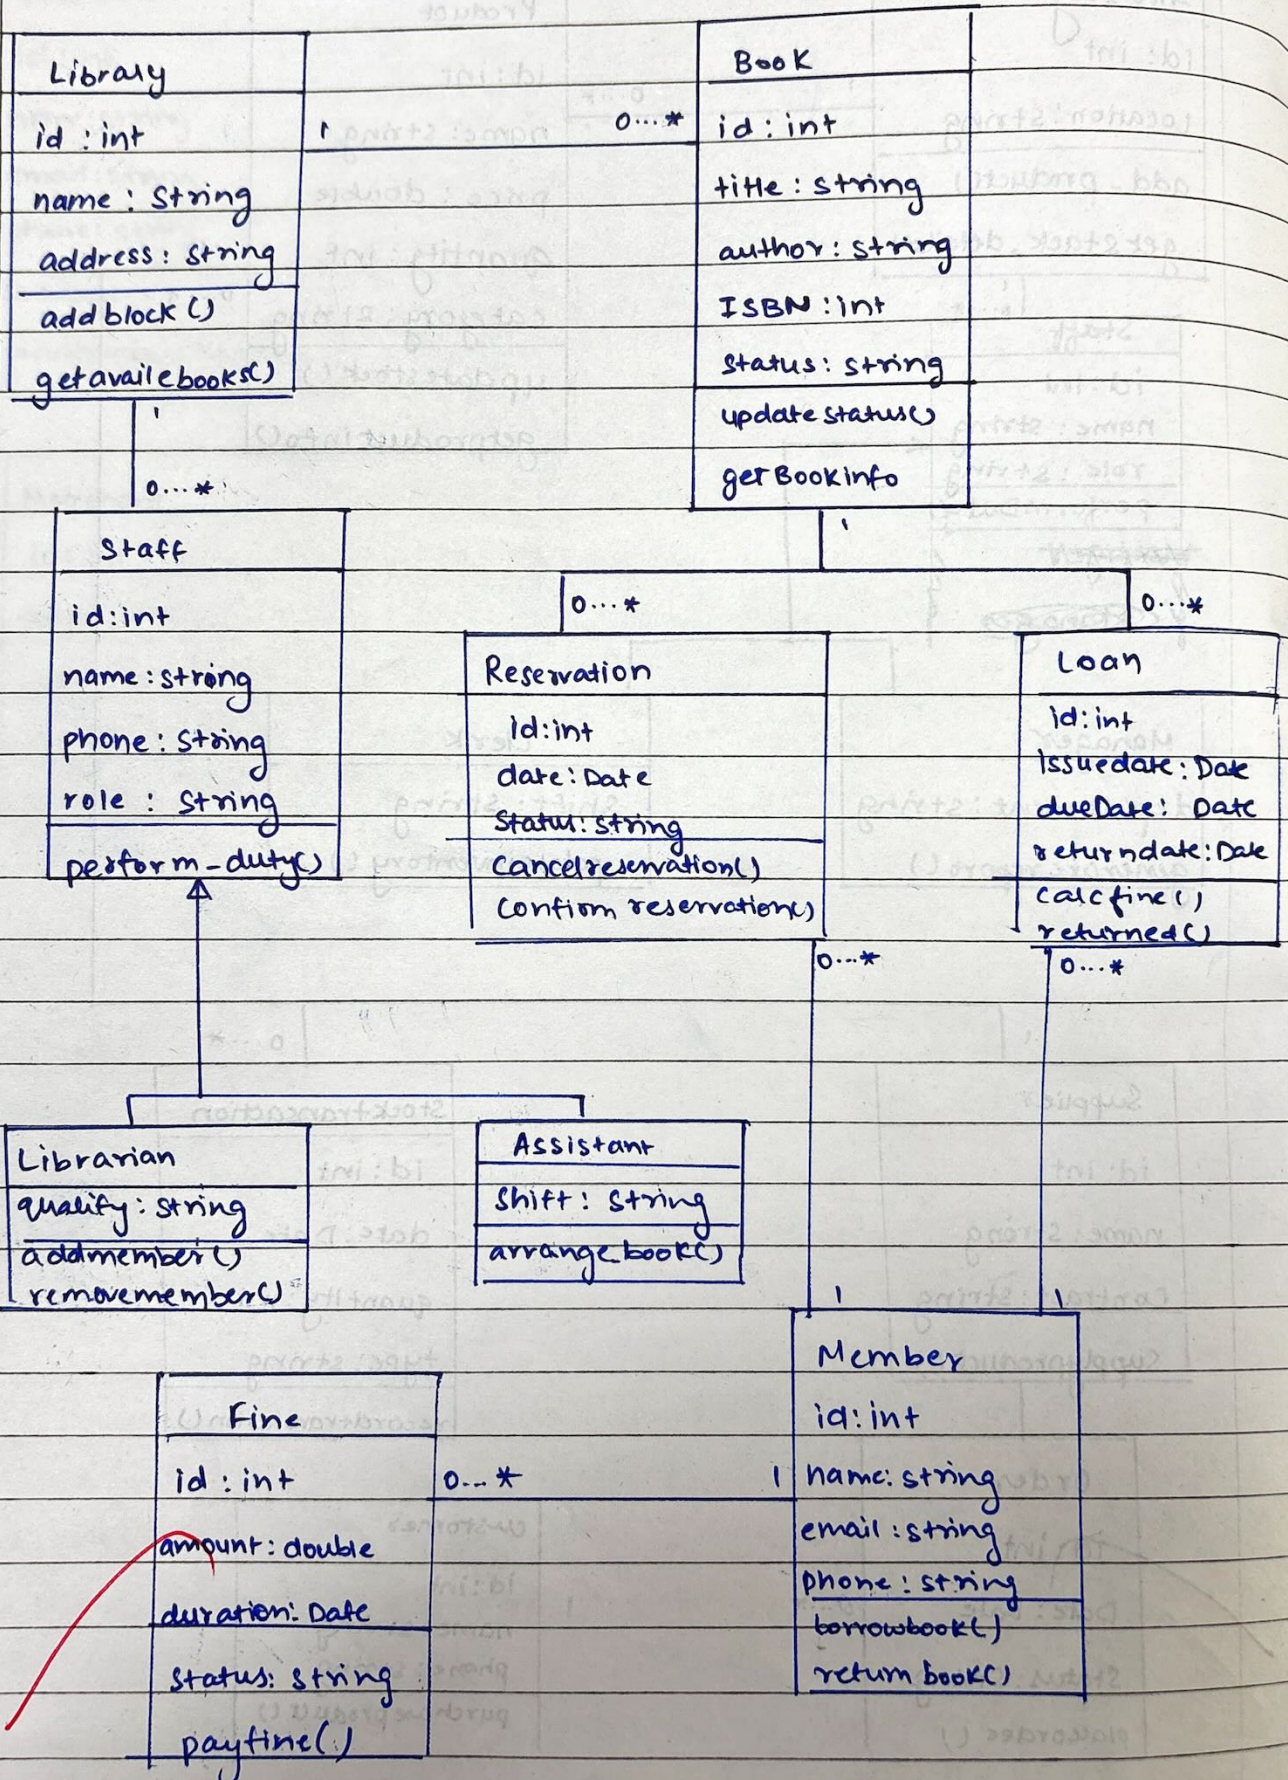 Library
id : int
name : string
address : string
addblock ()
getavailebooks()
1
0...*
Book
id : int
title : string
author : string
ISBN : int
status : string
update status()
getBookinfo
1
0...*
1
0...*
0...*
Staff
id:int
name:string
phone : string
role : string
perform_duty()
Reservation
id:int
date : Date
status: string
Cancelreservation()
Confirm reservation()
Loan
id:int
issuedate : Date
dueDate : Date
returndate:Date
calcfine()
returned()
0...*
0...*
Librarian
qualify: string
addmember()
removemember()
Assistant
shift : string
arrangebook()
1
1
Member
id:int
name: string
email : string
phone : string
borrowbook()
return book()
Fine
id : int
amount: double
duration: Date
status: string
payfine()
0...*
1